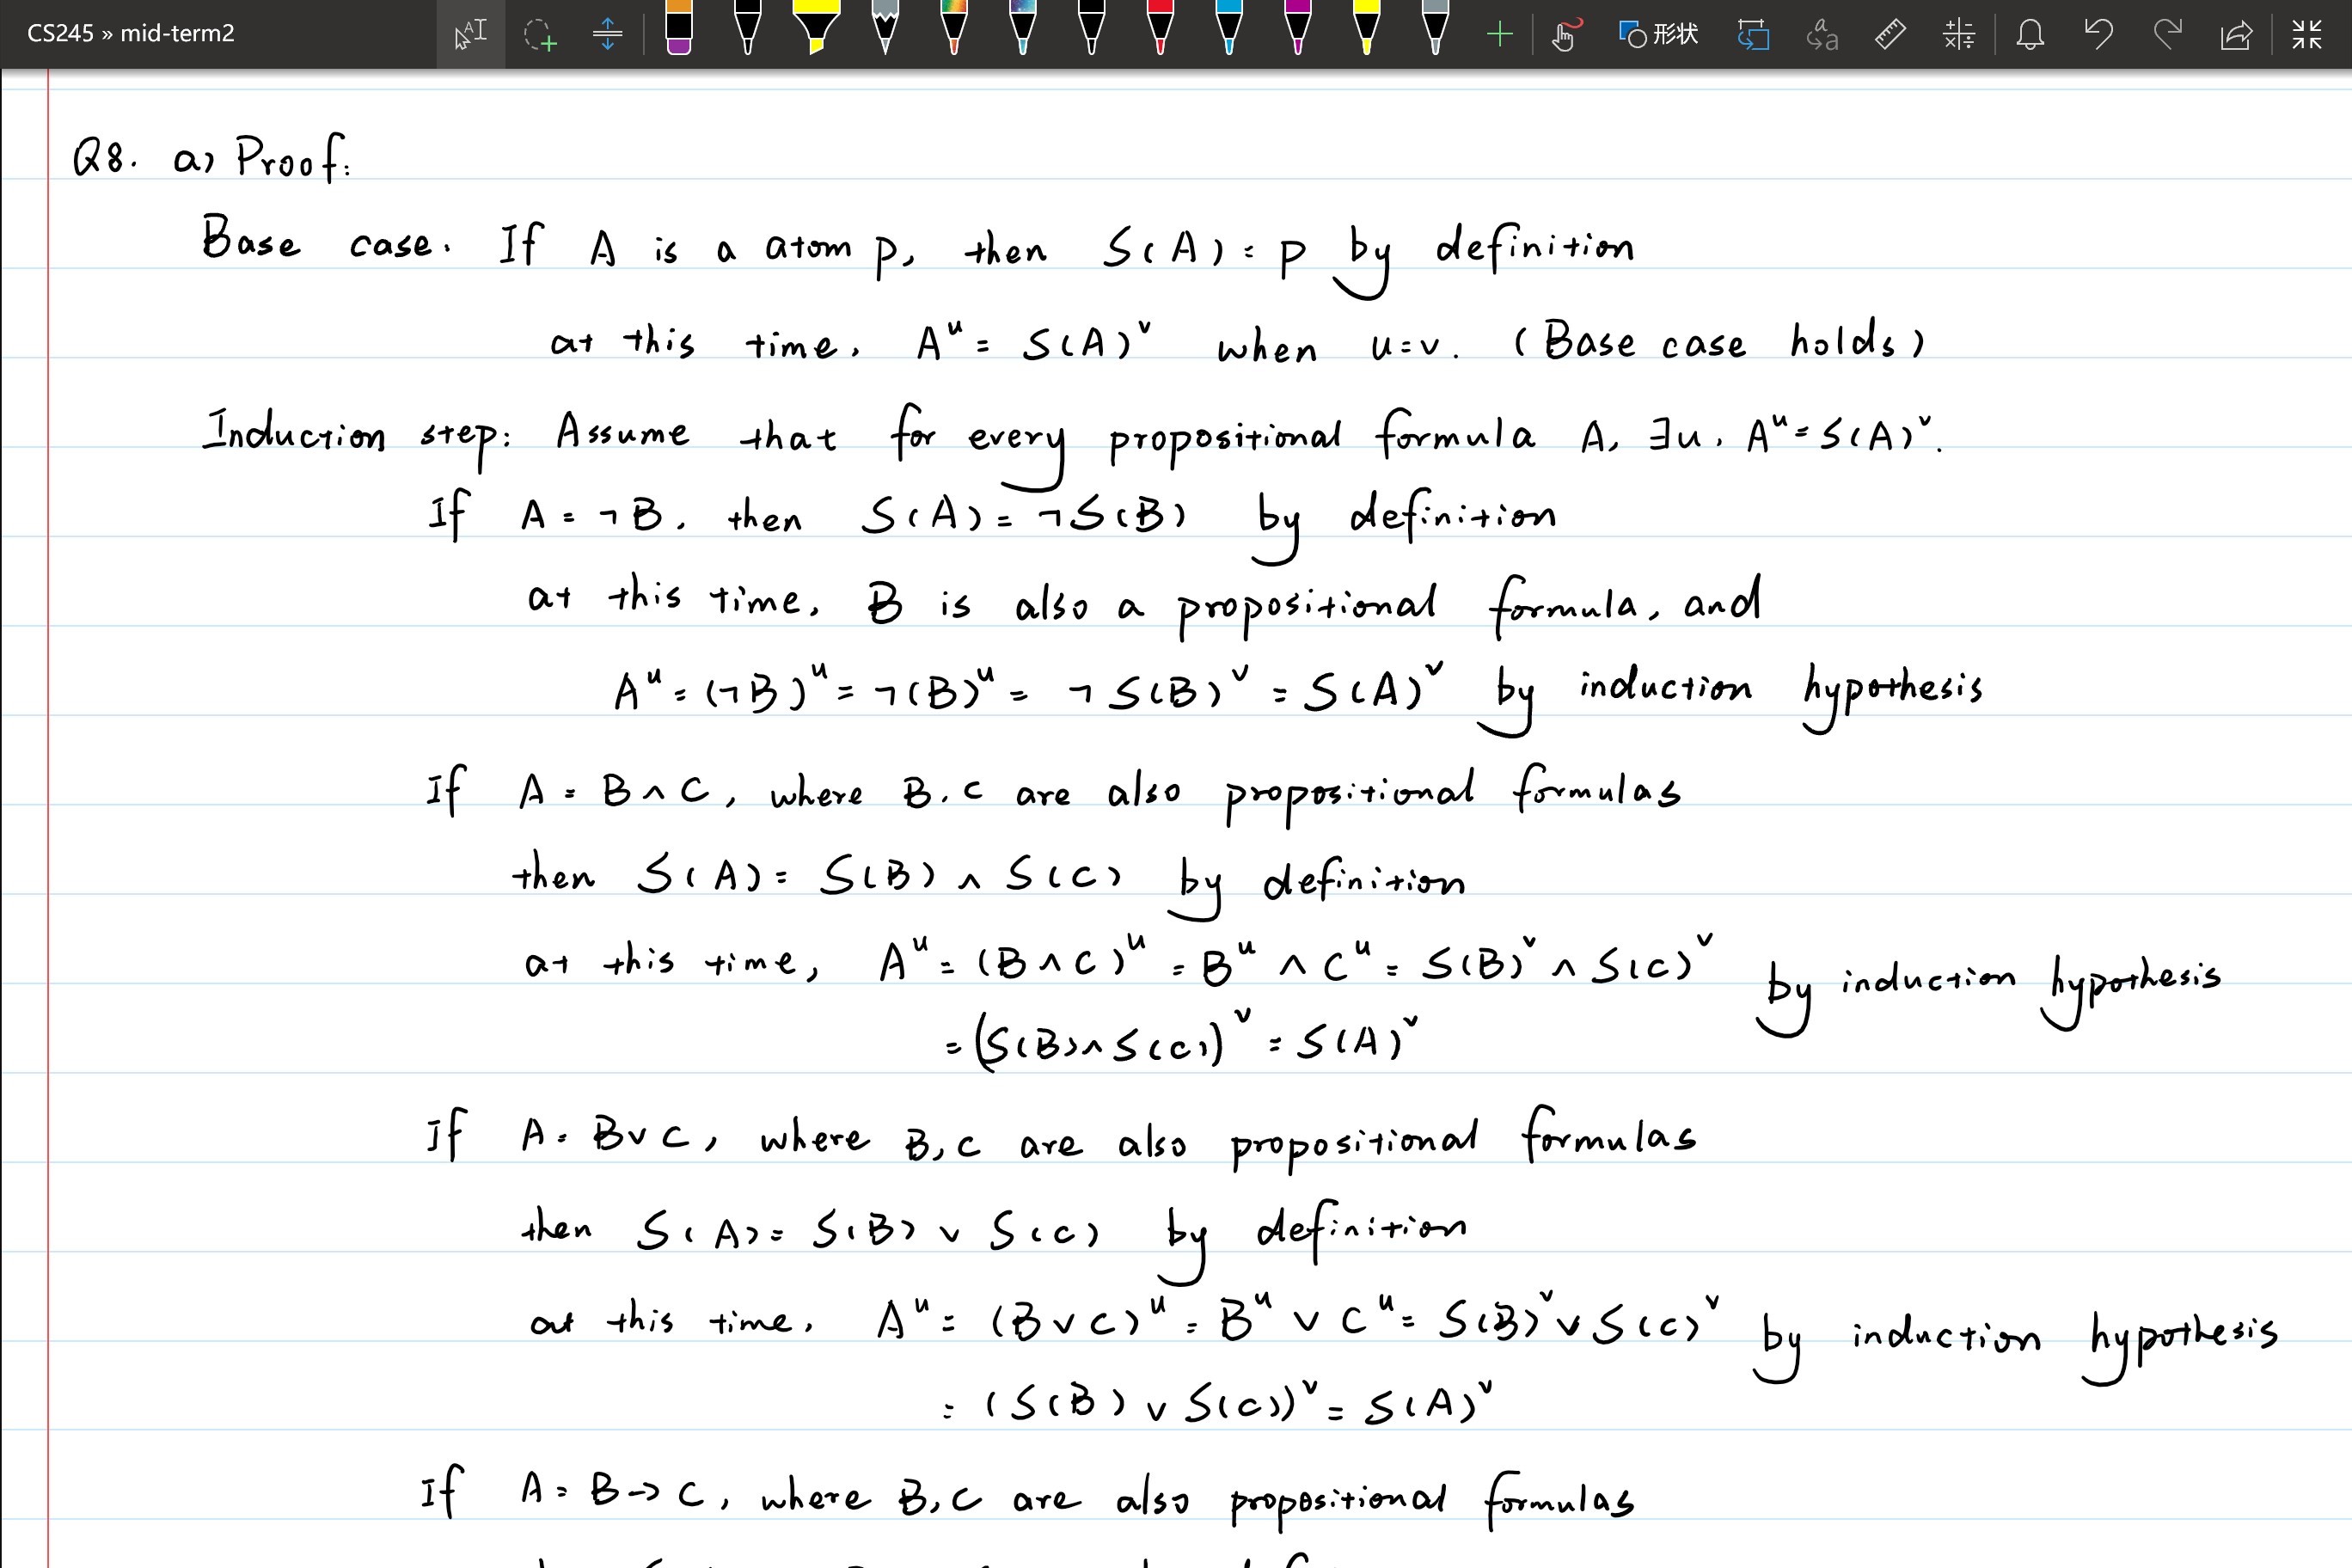 CS245 » mid-term2
形状
Q8. a) Proof:
Base case. If A is a atom p, then S(A) = p by definition
at this time, Aᵘ = S(A)ᵛ when u=v. (Base case holds)
Induction step: Assume that for every propositional formula A, ∃u, Aᵘ = S(A)ᵛ.
If A = ¬B, then S(A) = ¬S(B) by definition
at this time, B is also a propositional formula, and
Aᵘ = (¬B)ᵘ = ¬(B)ᵘ = ¬S(B)ᵛ = S(A)ᵛ by induction hypothesis
If A = B∧C, where B, C are also propositional formulas
then S(A) = S(B) ∧ S(C) by definition
at this time, Aᵘ = (B∧C)ᵘ = Bᵘ ∧ Cᵘ = S(B)ᵛ ∧ S(C)ᵛ by induction hypothesis
= (S(B)∧S(C))ᵛ = S(A)ᵛ
If A = B∨C, where B, C are also propositional formulas
then S(A) = S(B) ∨ S(C) by definition
at this time, Aᵘ = (B∨C)ᵘ = Bᵘ ∨ Cᵘ = S(B)ᵛ ∨ S(C)ᵛ by induction hypothesis
= (S(B) ∨ S(C))ᵛ = S(A)ᵛ
If A = B→C, where B, C are also propositional formulas